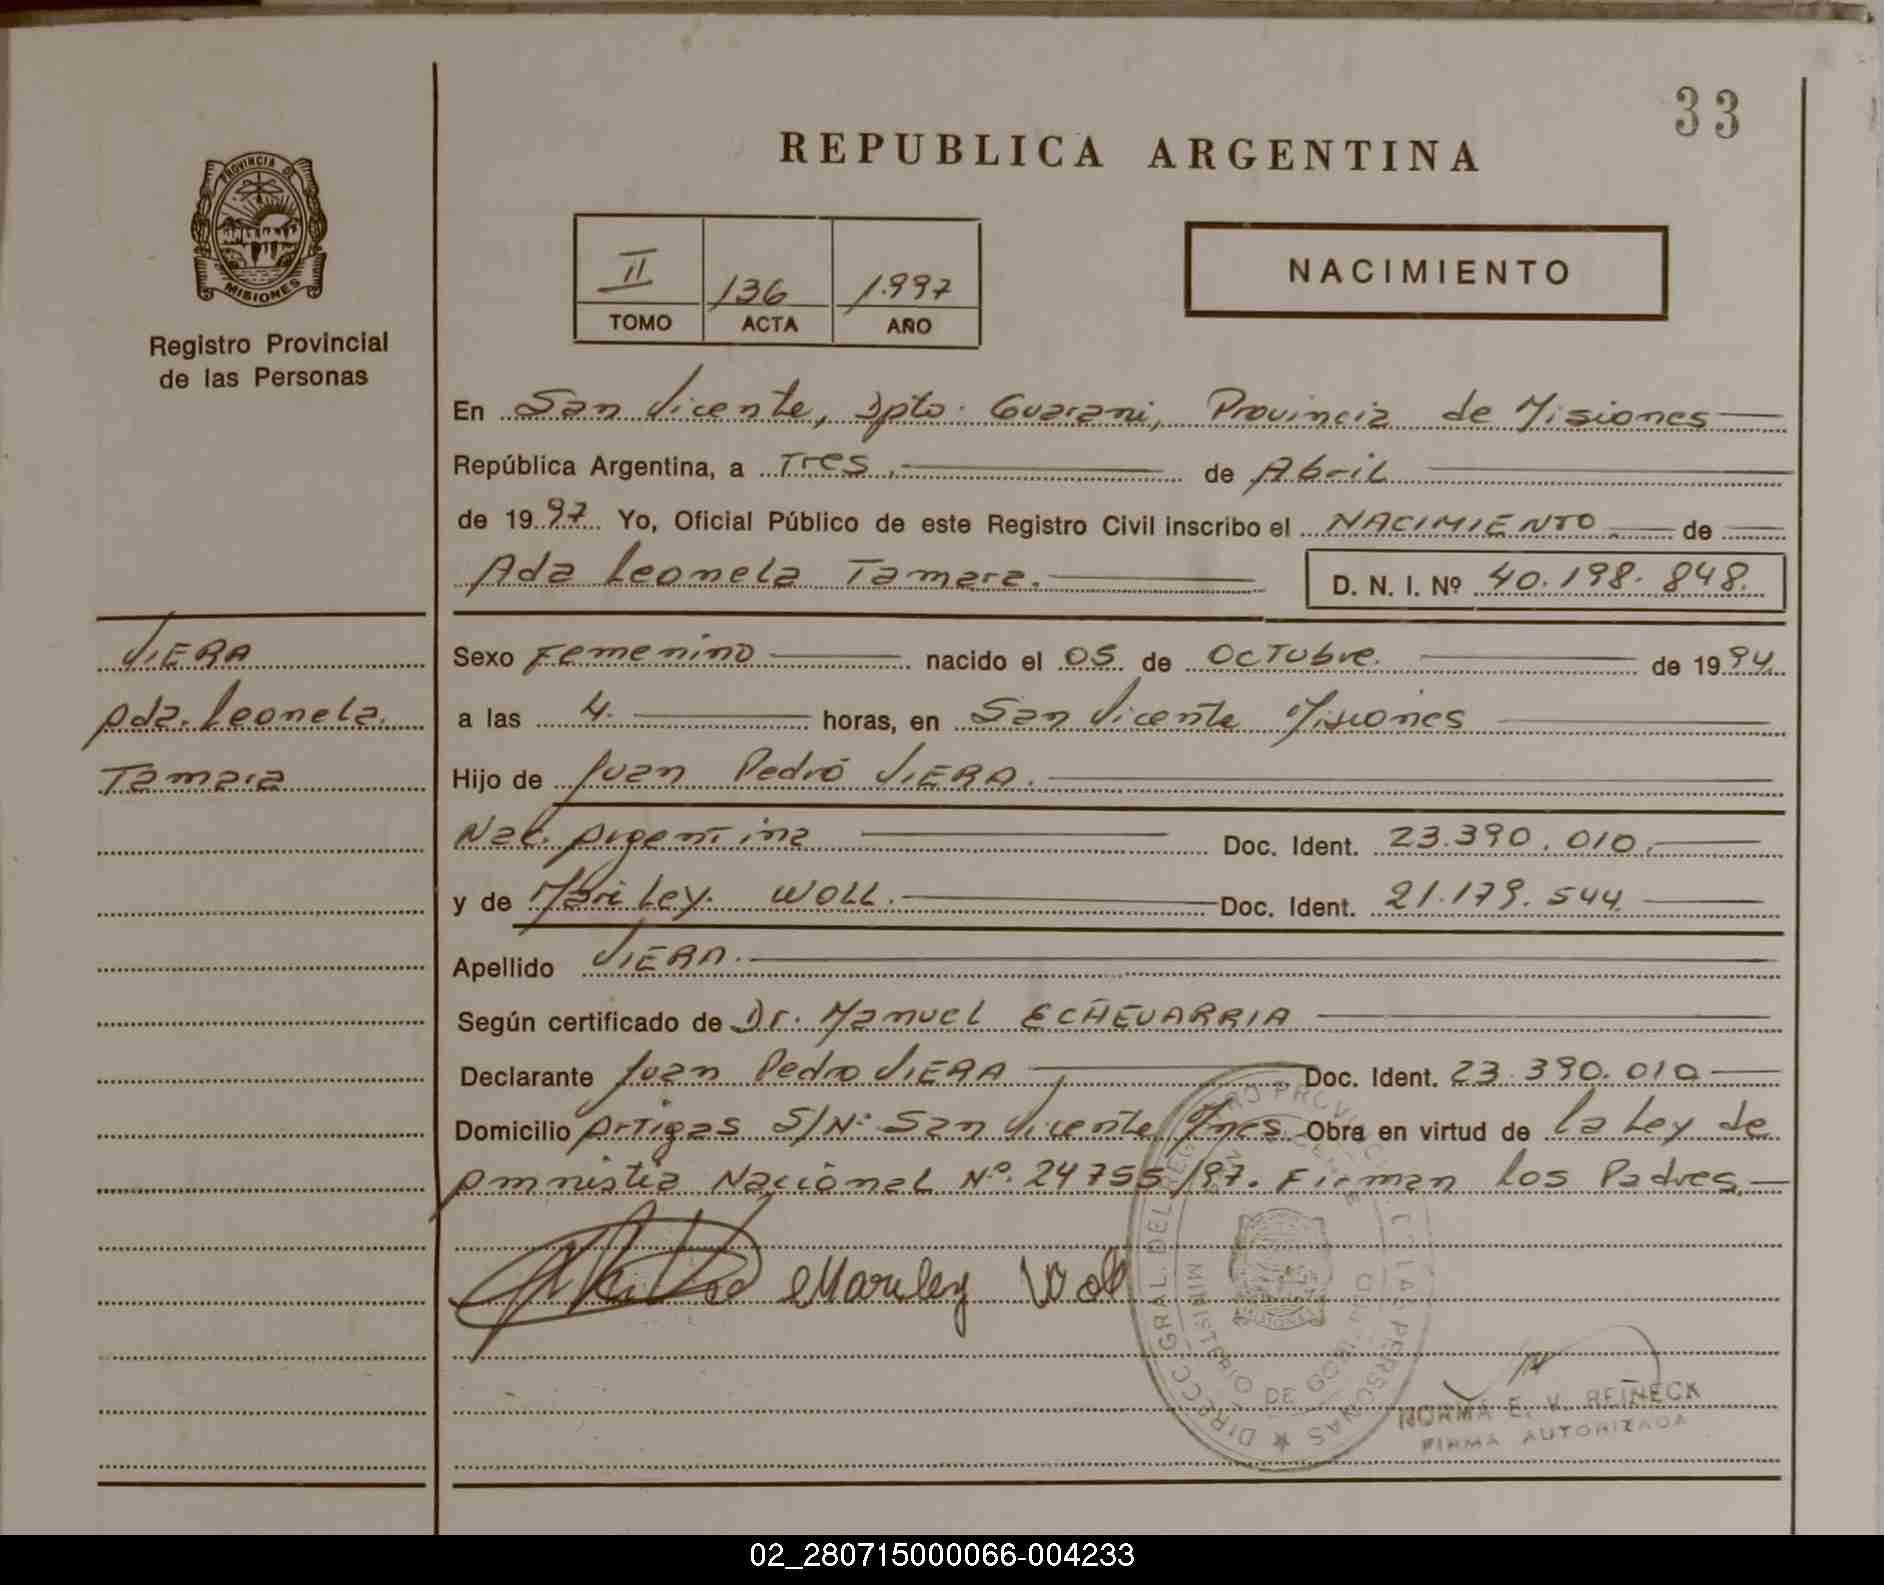 33
REPUBLICA ARGENTINA
PROVINCIA DE
MISIONES
Registro Provincial
de las Personas
II 136 1.997
TOMO ACTA AÑO
NACIMIENTO
En San Vicente, Dpto. Guarani, Provincia de Misiones
República Argentina, a Tres. de Abril
de 1997 Yo, Oficial Público de este Registro Civil inscribo el NACIMIENTO de
Ada Leonela Tamara. D. N. I. Nº 40.198.848.
VIERA
Ada. Leonela.
Tamara
Sexo Femenino nacido el 05 de OCTubre. de 1994
a las 4. horas, en San Vicente Misiones
Hijo de Juan Pedro VIERA.
Nac. Argentina Doc. Ident. 23.390.010.
y de Mariley. WOLL. Doc. Ident. 21.179.544
Apellido VIERA.
Según certificado de Dr. Manuel ECHEVARRIA
Declarante Juan Pedro VIERA Doc. Ident. 23.390.010
Domicilio Artigas S/Nº San Vicente Mnes. Obra en virtud de la Ley de
Amnistia Nacional Nº. 24755/97. Firman los Padres.
Mariley Woll
DIRECC. GRAL. DEL REGISTRO PROVINCIAL DE LAS PERSONAS
MINISTERIO DE GOBIERNO
NORMA E. V. REINECK
FIRMA AUTORIZADA
02_280715000066-004233